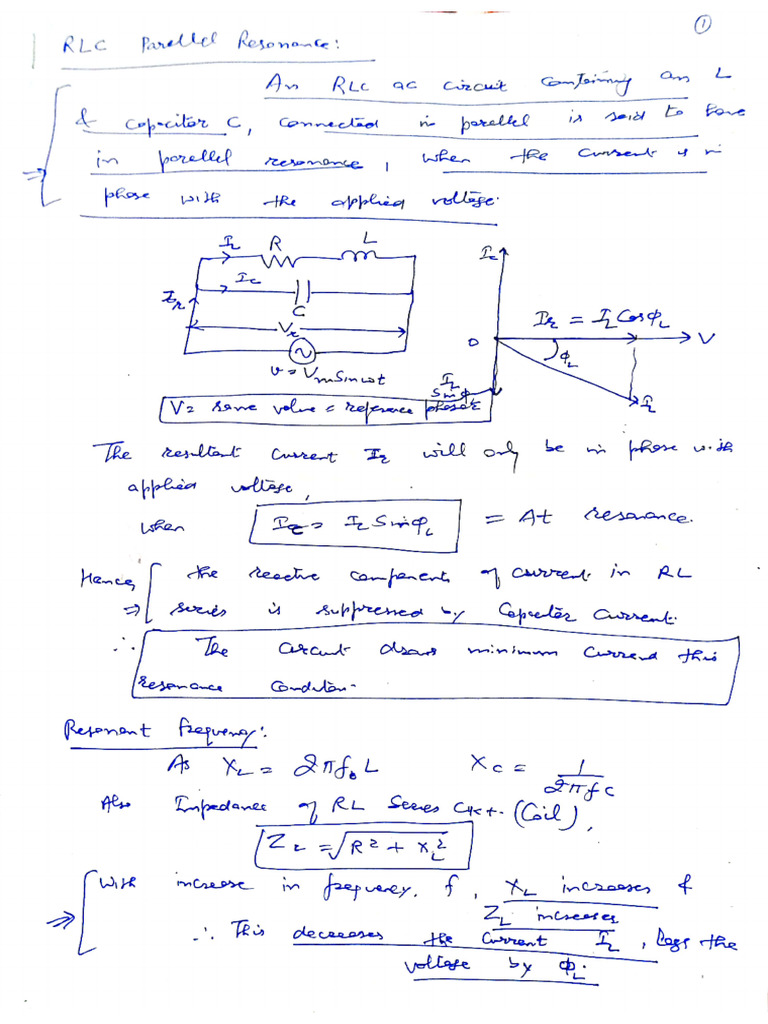 1
RLC Parallel Resonance:
An RLC ac circuit containing an L
& capacitor C, connected in parallel is said to have
in parallel resonance, when the current is in
phase with the applied voltage.
I_L R L
I_C
I_r
C
V_r
v = V_m Sin ωt
V = same value = reference phasor
I_C
I_r = I_L Cos φ_L
O V
φ_L
I_L Sin φ
I_L
The resultant current I_r will only be in phase with
applied voltage,
when I_C = I_L Sin φ_L = At resonance.
Hence, the reactive components of current in RL
⇒ series is suppressed by Capacitor Current.
∴ The circuit draws minimum current this
resonance condition.
Resonant frequency:
As X_L = 2πf₀L X_C = 1/2πfC
Also Impedance of RL Series Ckt. (Coil),
Z_L = √R² + X_L²
With increase in frequency f, X_L increases &
Z_L increases
⇒ ∴ This decreases the current I_L, lags the
voltage by φ_L.